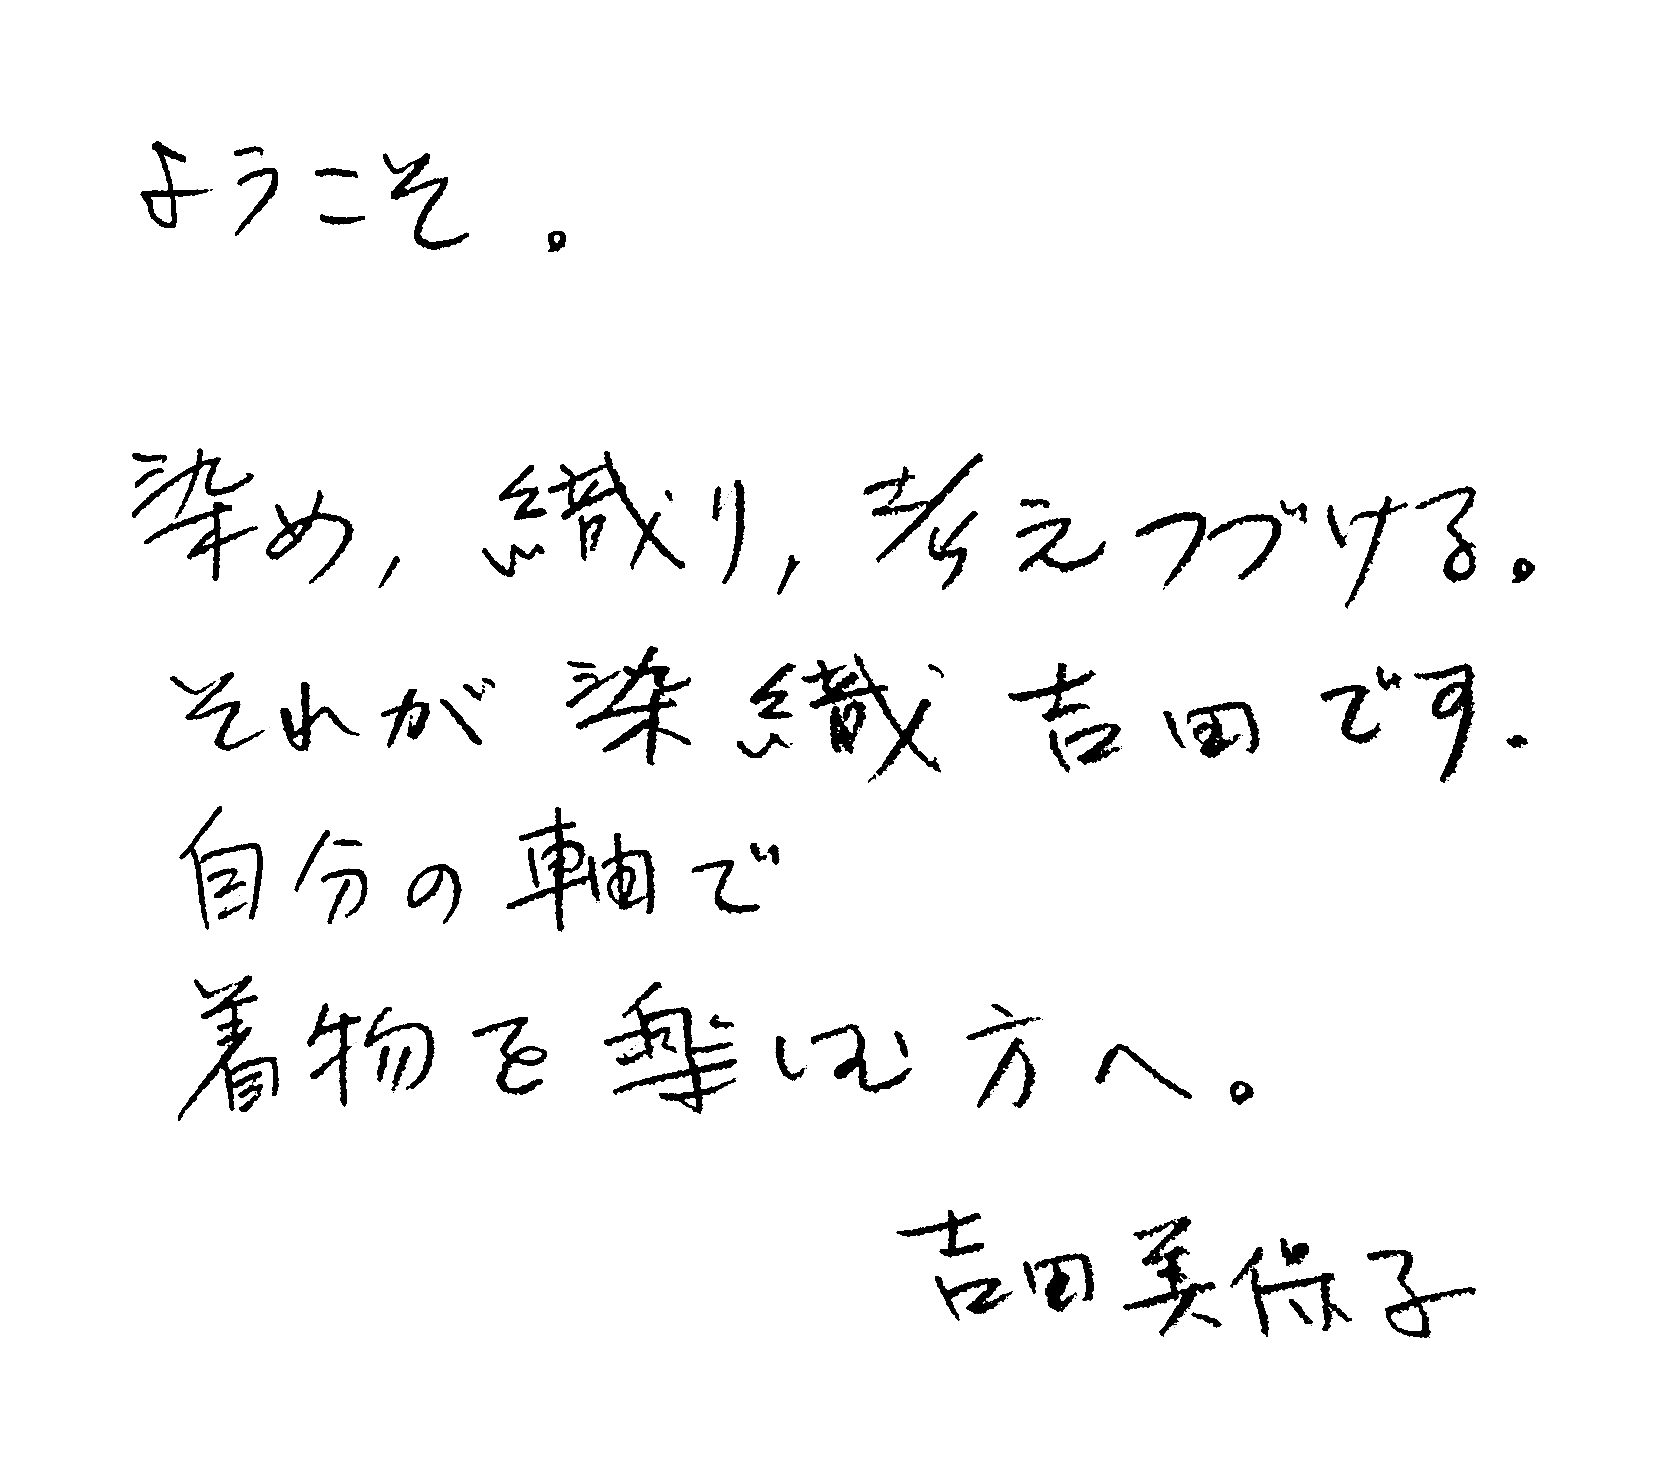 ようこそ。
染め,織り,考えつづける。
それが染織吉田です.
自分の軸で
着物を楽しむ方へ。
吉田美保子